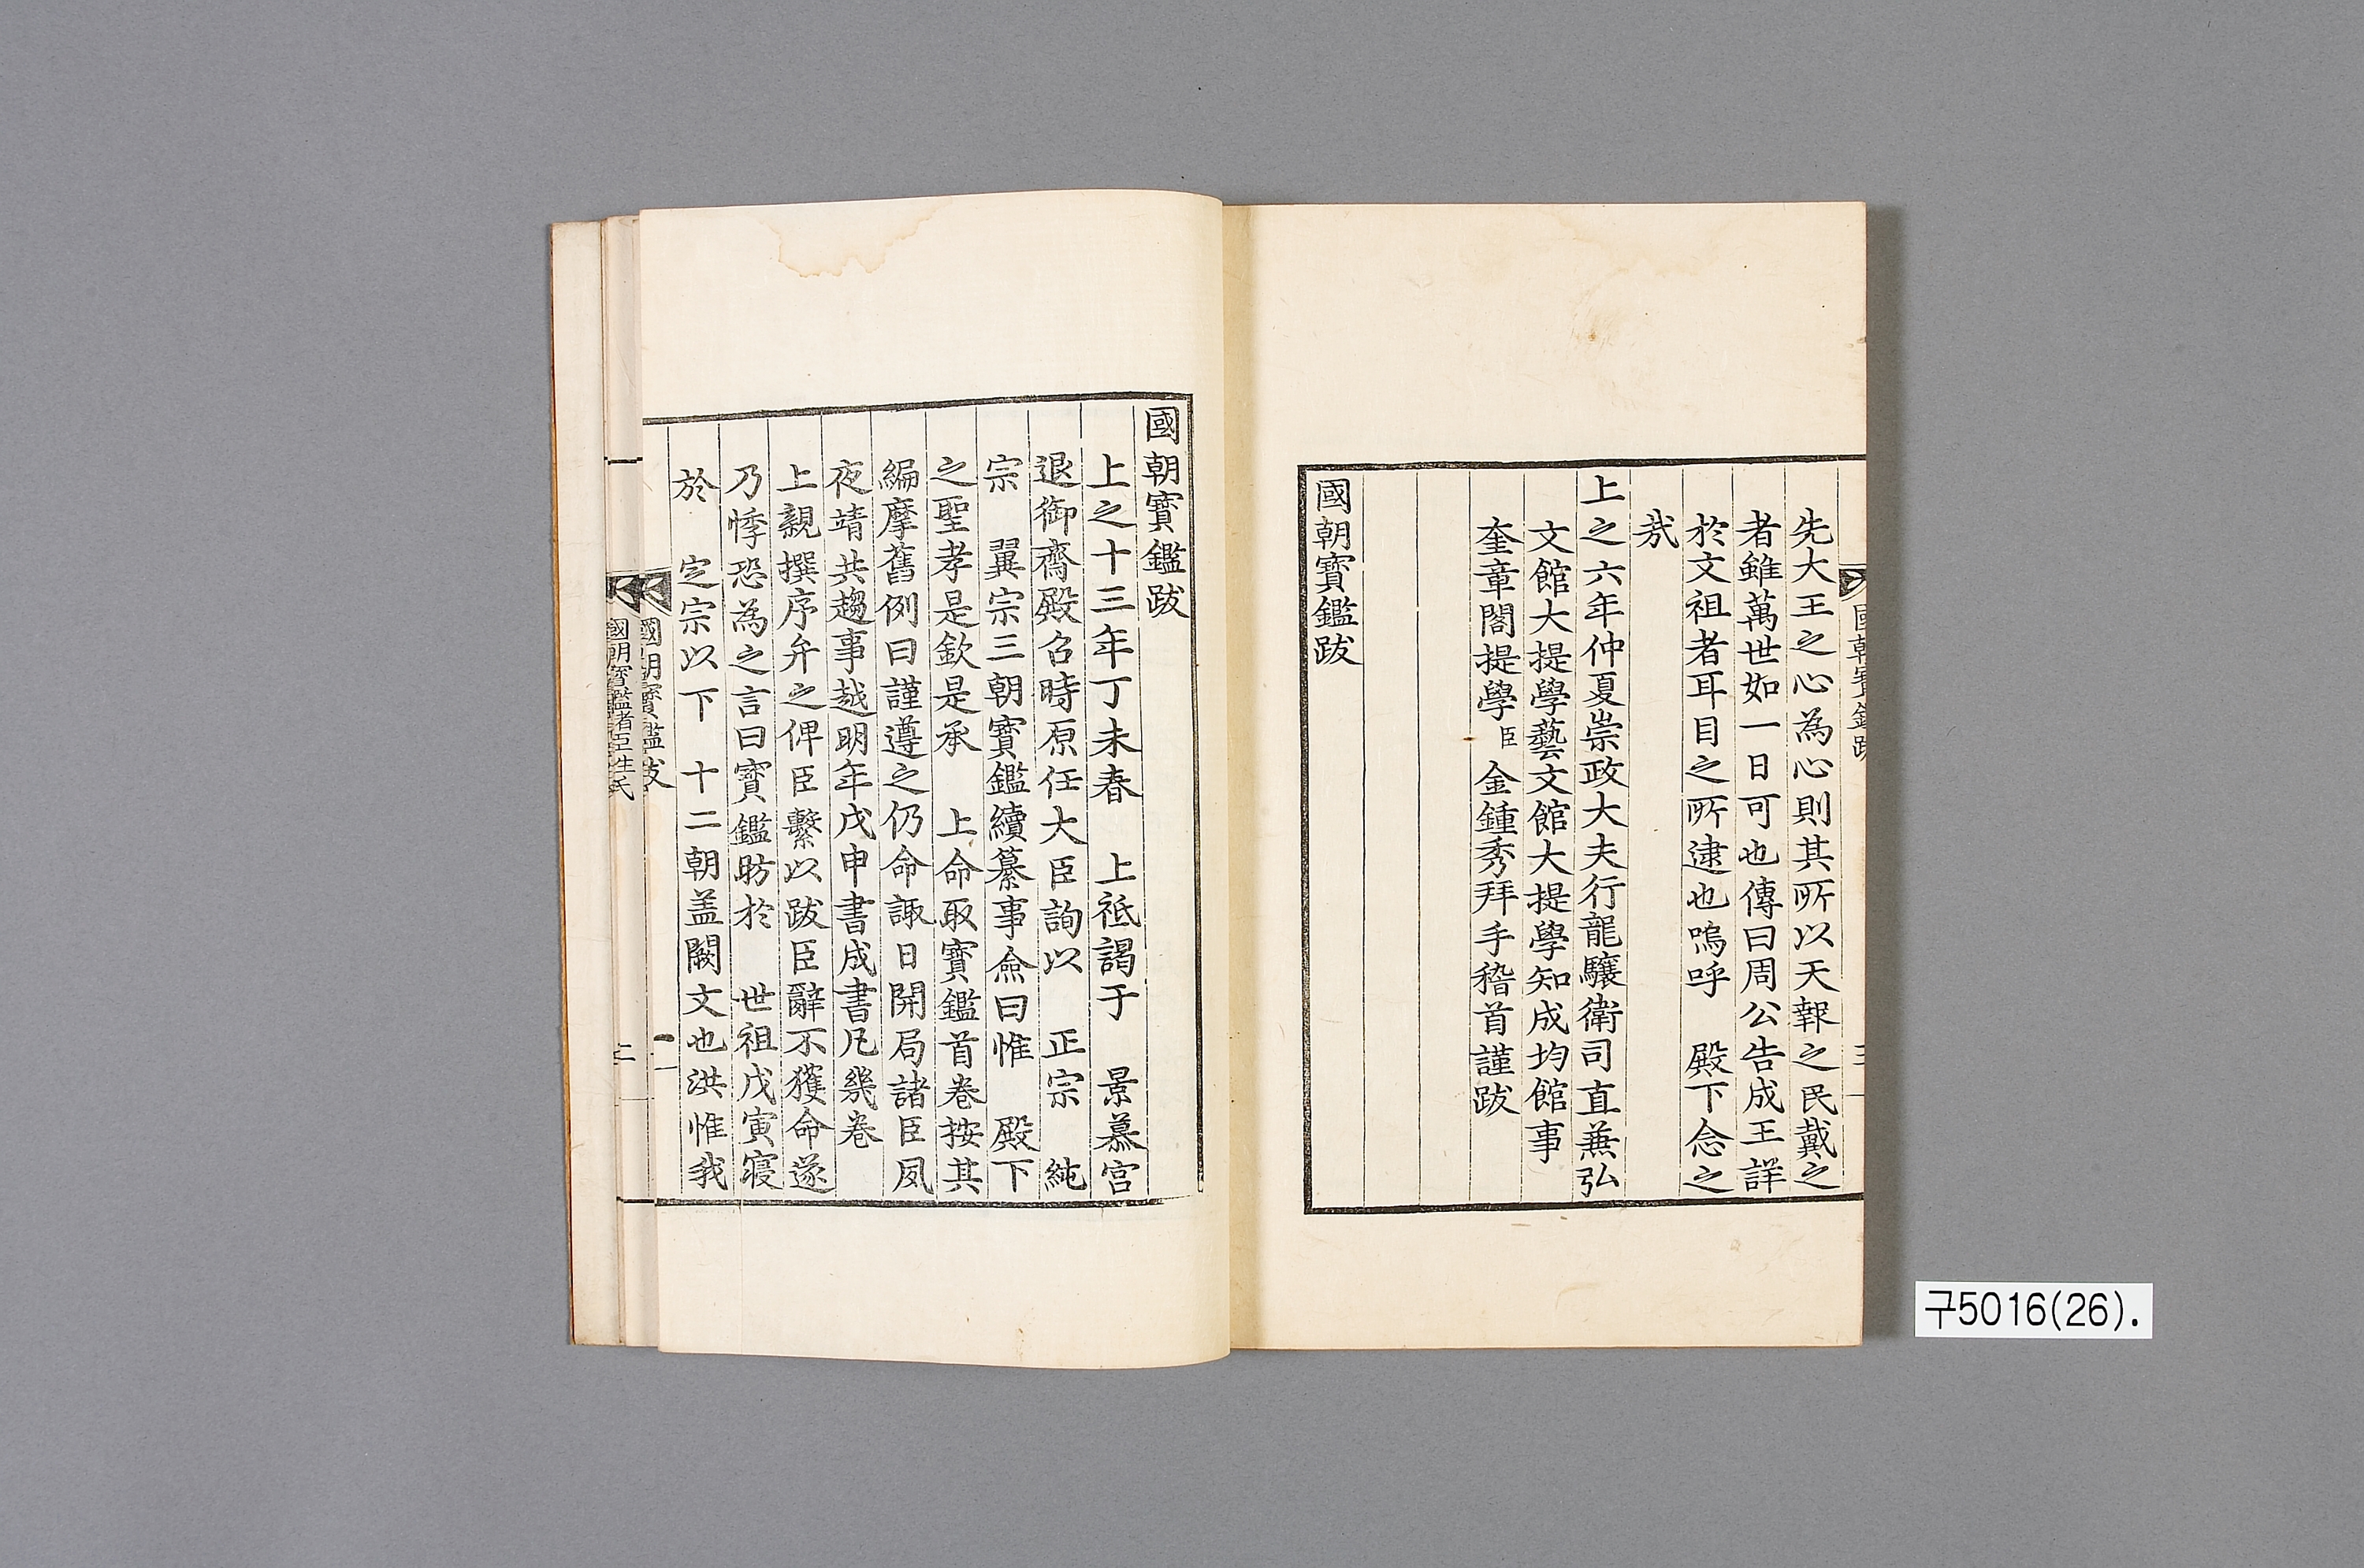 先大王之心為心則其所以天報之民戴之
者雖萬世如一日可也傳曰周公告成王詳
於文祖者耳目之所逮也嗚呼 殿下念之
哉
上之六年仲夏崇政大夫行龍驤衛司直兼弘
文館大提學藝文館大提學知成均館事
奎章閣提學臣金鍾秀拜手稽首謹跋
國朝寶鑑跋
國朝寶鑑跋
上之十三年丁未春 上祗謁于 景慕宮
退御齋殿召時原任大臣詢以 正宗 純
宗 翼宗三朝寶鑑續纂事僉曰惟 殿下
之聖孝是欽是承 上命取寶鑑首卷按其
編摩舊例曰謹遵之仍命諏日開局諸臣夙
夜靖共趨事越明年戊申書成書凡幾卷
上親撰序弁之俾臣繫以跋臣辭不獲命遂
乃悸恐為之言曰寶鑑昉於 世祖戊寅寢
於 定宗以下 十二朝盖闕文也洪惟我
國朝寶鑑跋
一
二
구5016(26).